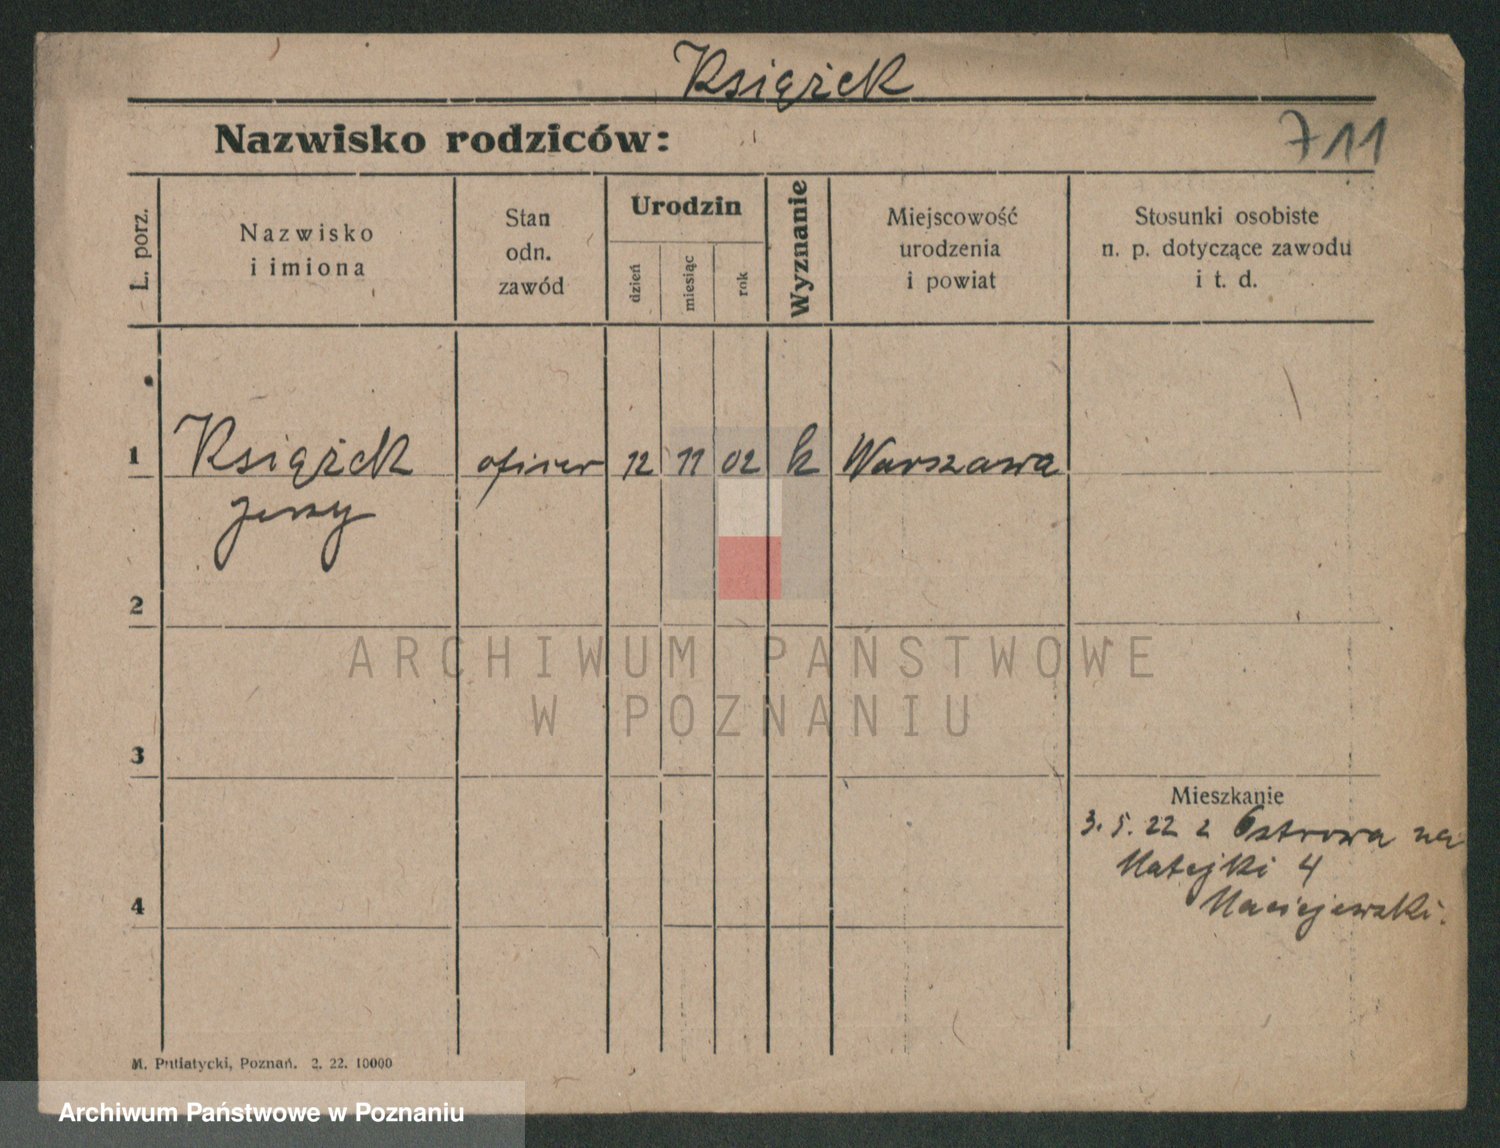 Książek
Nazwisko rodziców:
711
L. porz.
Nazwisko
i imiona
Stan
odn.
zawód
Urodzin
dzień
miesiąc
rok
Wyznanie
Miejscowość
urodzenia
i powiat
Stosunki osobiste
n. p. dotyczące zawodu
i t. d.
1 Książek oficer 12 11 02 k Warszawa
Jerzy
2
3
4
Mieszkanie
3. 5. 22 z Ostrowa na
Matejki 4
Maciejewski.
M. Putiatycki, Poznań. 2. 22. 10000
ARCHIWUM PAŃSTWOWE
W POZNANIU
Archiwum Państwowe w Poznaniu